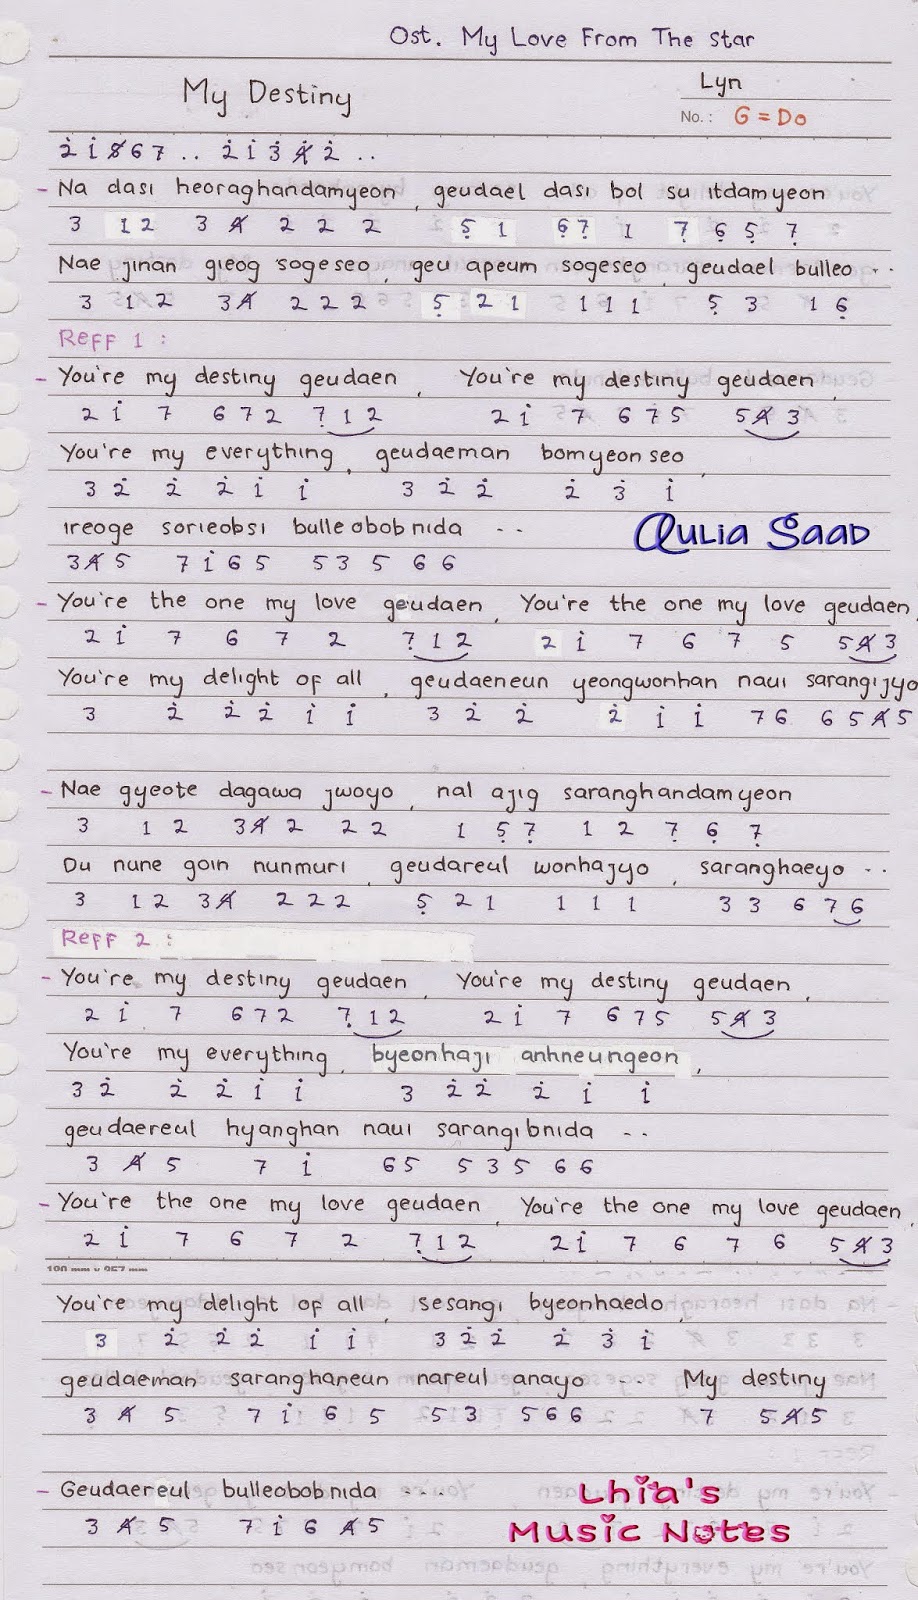 Ost. My Love From The Star
My Destiny
Lyn
No.: G = Do
2̇ 1̇ 5̸ 6 7 .. 2̇ 1̇ 3̇ 4̸̇ 2̇ ..
- Na dasi heoraghandamyeon, geudael dasi bol su itdamyeon
3 1 2 3 4̸ 2 2 2 5̣ 1 6̣ 7̣ 1 7̣ 6̣ 5̣ 7̣
Nae jinan gieog sogeseo, geu apeum sogeseo, geudael bulleo ..
3 1 2 3 4̸ 2 2 2 5̣ 2 1 1 1 1 5̣ 3 1 6̣
Reff 1 :
- You're my destiny geudaen, You're my destiny geudaen,
2 1̇ 7 6 7 2 7̣ 1 2 2 1̇ 7 6 7 5 5 4̸ 3
You're my everything, geudaeman bomyeonseo,
3 2̇ 2̇ 2̇ 1̇ 1̇ 3 2̇ 2̇ 2̇ 3̇ 1̇
ireoge sorieobsi bulleobobnida ..
Qulia Saad
3 4̸ 5 7 1̇ 6 5 5 3 5 6 6
- You're the one my love geudaen, You're the one my love geudaen,
2 1̇ 7 6 7 2 7̣ 1 2 2 1̇ 7 6 7 5 5 4̸ 3
You're my delight of all, geudaeneun yeongwonhan naui sarangijyo
3 2̇ 2̇ 2̇ 1̇ 1̇ 3 2̇ 2̇ 2̇ 1̇ 1̇ 7 6 6 5 4̸ 5
- Nae gyeote dagawa jwoyo, nal ajig saranghandamyeon
3 1 2 3 4̸ 2 2 2 1 5̣ 7̣ 1 2 7̣ 6̣ 7̣
Du nune goin nunmuri, geudareul wonhajyo, saranghaeyo ..
3 1 2 3 4̸ 2 2 2 5̣ 2 1 1 1 1 3 3 6 7 6
Reff 2 :
- You're my destiny geudaen, You're my destiny geudaen,
2 1̇ 7 6 7 2 7̣ 1 2 2 1̇ 7 6 7 5 5 4̸ 3
You're my everything, byeonhaji anhneungeon,
3 2̇ 2̇ 2̇ 1̇ 1̇ 3 2̇ 2̇ 2̇ 1̇ 1̇
geudaereul hyanghan naui sarangibnida ..
3 4̸ 5 7 1̇ 6 5 5 3 5 6 6
- You're the one my love geudaen, You're the one my love geudaen,
2 1̇ 7 6 7 2 7̣ 1 2 2 1̇ 7 6 7 6 5 4̸ 3
You're my delight of all, sesangi byeonhaedo,
3 2̇ 2̇ 2̇ 1̇ 1̇ 3 2̇ 2̇ 2̇ 3̇ 1̇
geudaeman saranghaneun nareul anayo .. My destiny
3 4̸ 5 7 1̇ 6 5 5 3 5 6 6 7 5 4̸ 5
- Geudaereul bulleobobnida ....
3 4̸ 5 7 1̇ 6 4̸ 5
Lhia's
Music Notes